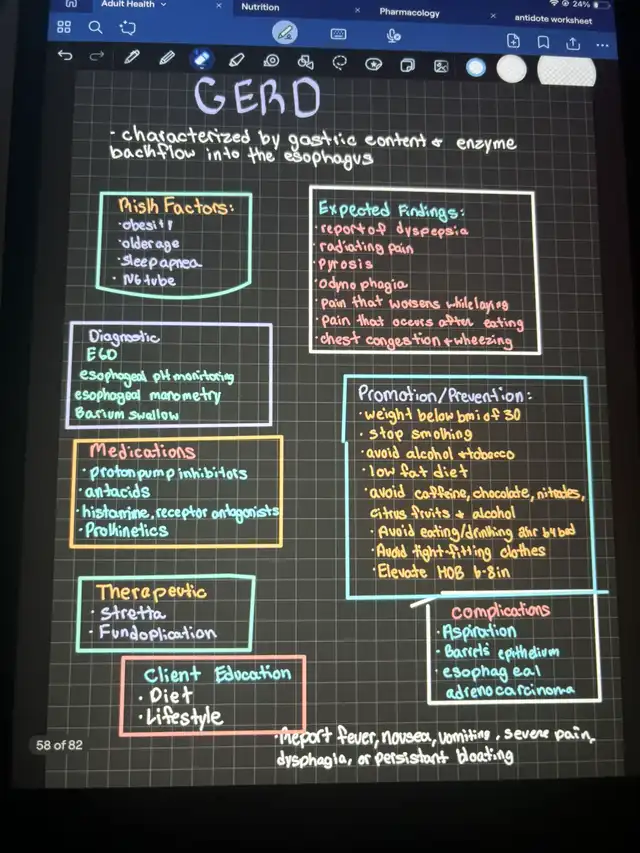 24%
Adult Health
Nutrition
Pharmacology
antidote worksheet
GERD
· characterized by gastric content & enzyme
backflow into the esophagus
Risk Factors:
· obesity
· older age
· sleep apnea
· NG tube
Expected Findings:
· report of dyspepsia
· radiating pain
· pyrosis
· odynophagia
· pain that worsens while laying
· pain that occurs after eating
· chest congestion + wheezing
Diagnostic
EGD
esophageal pH monitoring
esophageal manometry
Barium swallow
Promotion/Prevention:
· weight below bmi of 30
· stop smoking
· avoid alcohol + tobacco
· low fat diet
· avoid caffeine, chocolate, nitrates,
citrus fruits & alcohol
· Avoid eating/drinking 2hr b4 bed
· Avoid tight-fitting clothes
· Elevate HOB 6-8in
Medications
· proton pump inhibitors
· antacids
· histamine, receptor antagonists
· Prokinetics
Therapeutic
· Stretta
· Fundoplication
complications
· Aspiration
· Barrets epithelium
· esophageal
adrenocarcinoma
Client Education
· Diet
· Lifestyle
· Report fever, nausea, vomiting, severe pain,
dysphagia, or persistant bloating
58 of 82